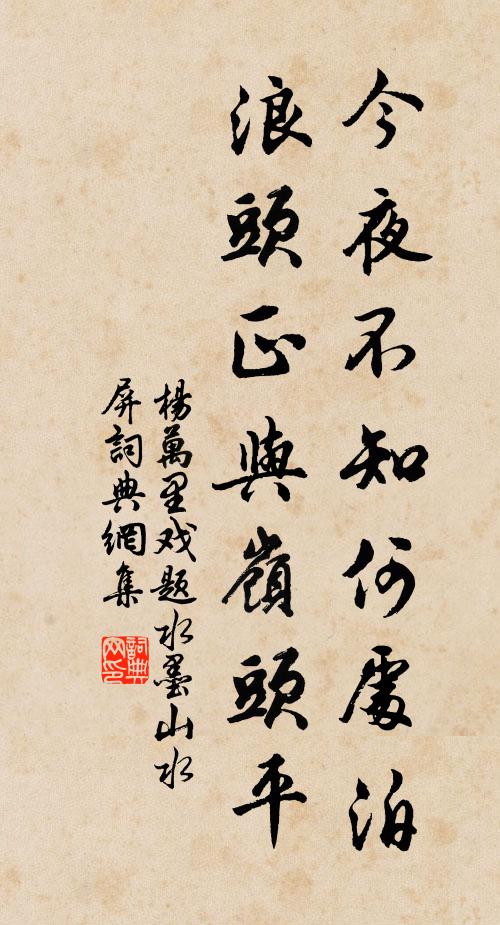 今夜不知何處泊
浪頭正與嶺頭平
楊萬里戏题水墨山水
屏詞典網集
詞典
网印